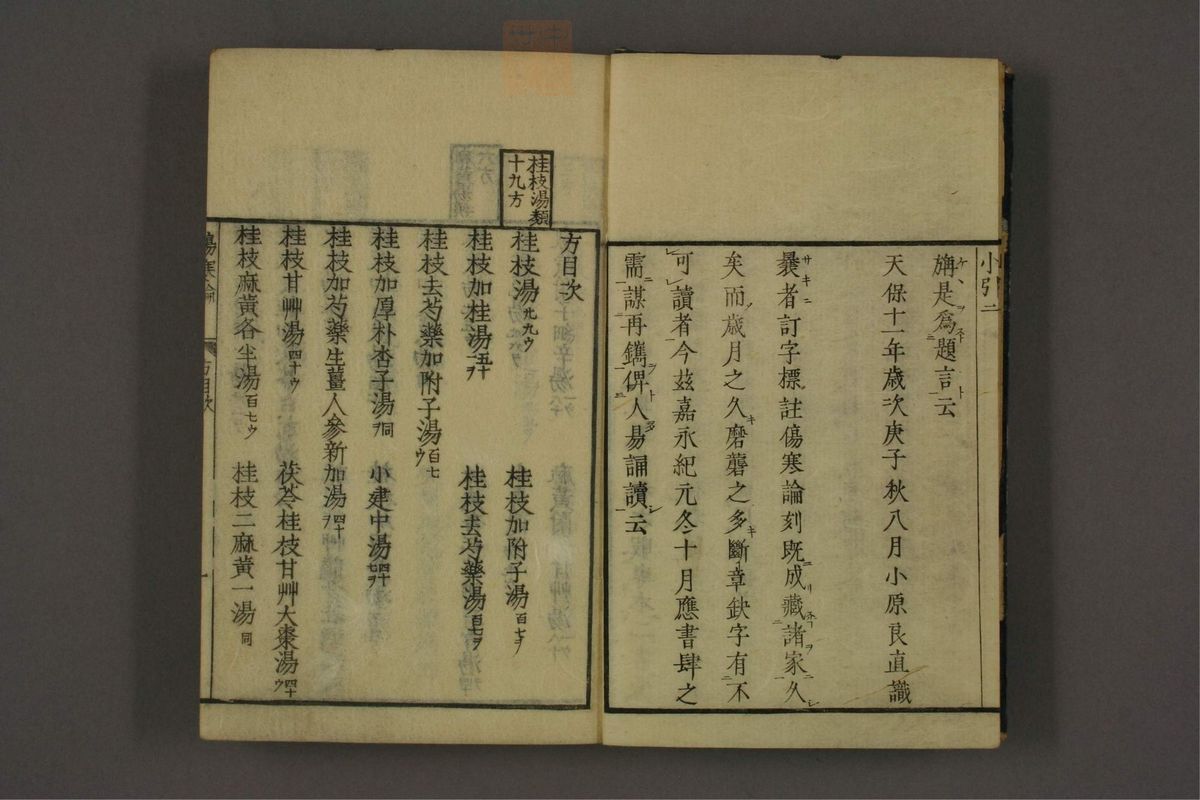 小引 二
旃是爲題言云
天保十一年歳次庚子秋八月小原良直識
曩者訂字標註傷寒論刻既成藏諸家久
矣而歳月之久磨礱之多斷章缺字有不
可讀者今茲嘉永紀元冬十月應書肆之
需謀再鐫俾人易誦讀云
桂枝湯類
十九方
方目次
桂枝湯 廿九ウ 桂枝加附子湯 百七ヲ
桂枝加桂湯 五十一ヲ 桂枝去芍藥湯 百七ヲ
桂枝去芍藥加附子湯 百七ウ
桂枝加厚朴杏子湯 同ヲ 小建中湯 四十七ヲ
桂枝加芍藥生薑人參新加湯 四十ヲ
桂枝甘艸湯 四十ウ 茯苓桂枝甘艸大棗湯 四十ウ
桂枝麻黃各半湯 百七ウ 桂枝二麻黃一湯 同
傷寒論 方目次 一